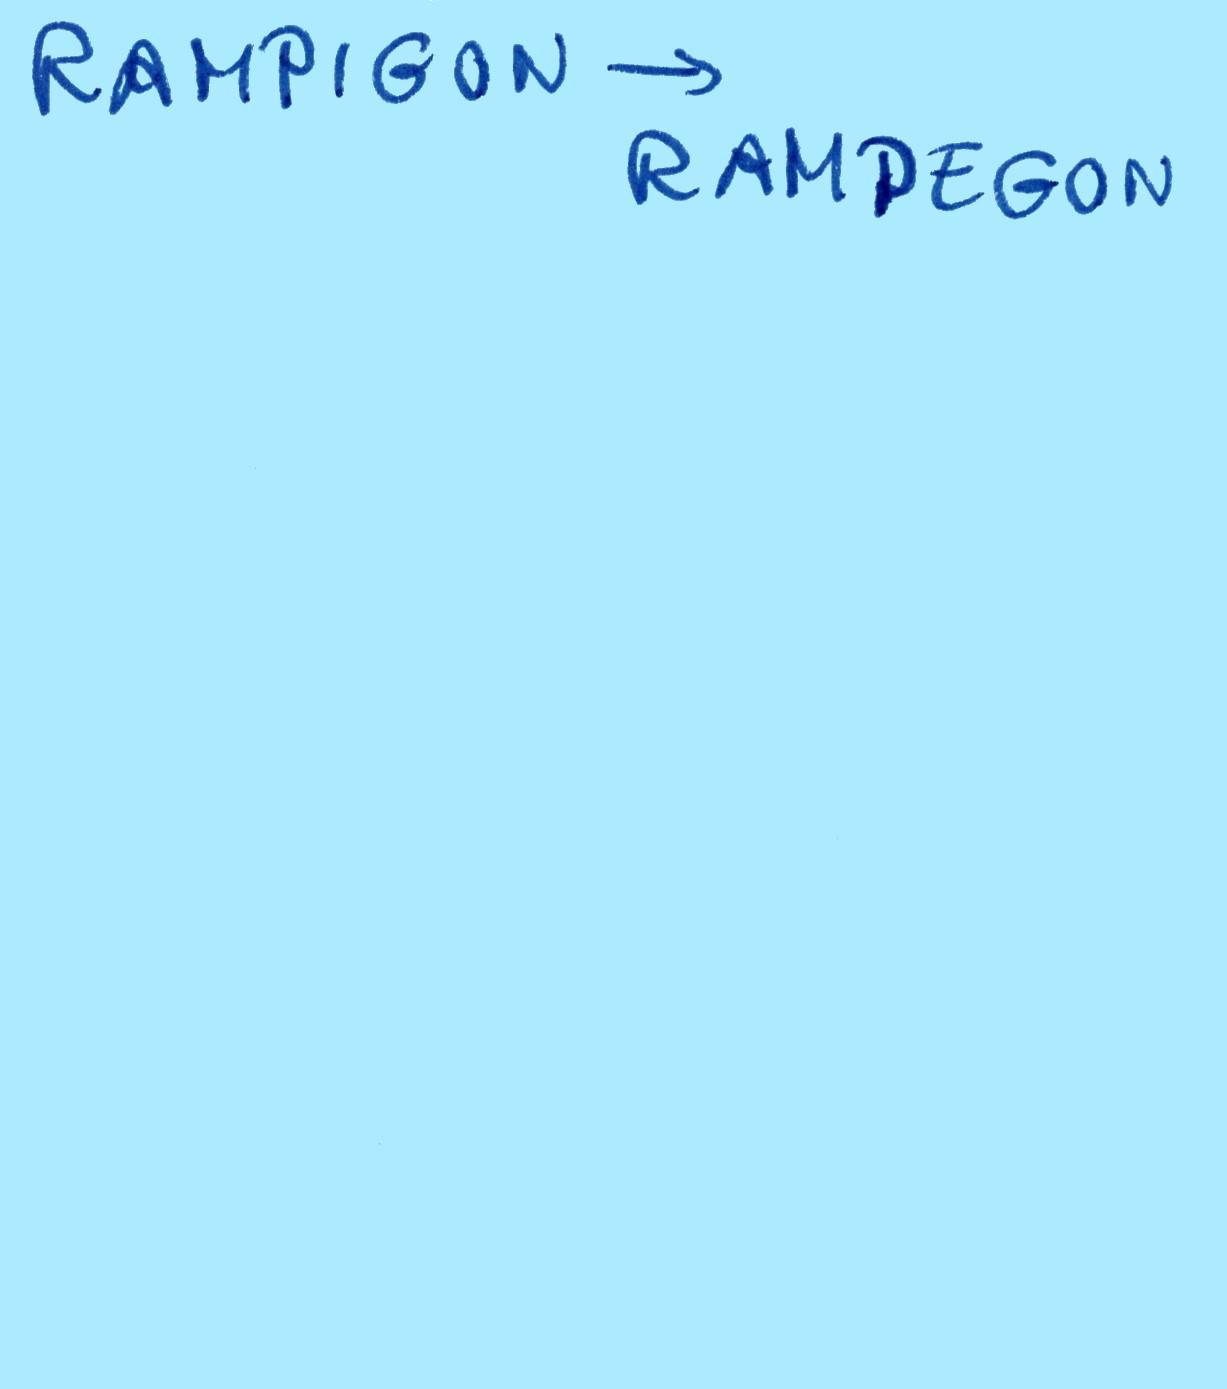 RAMPIGON →
RAMPEGON